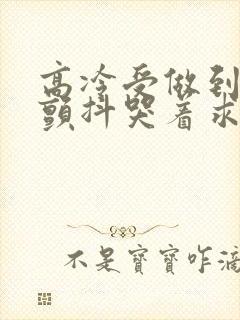 高冷受做到
颤抖哭着求
不是寶寶咋滴